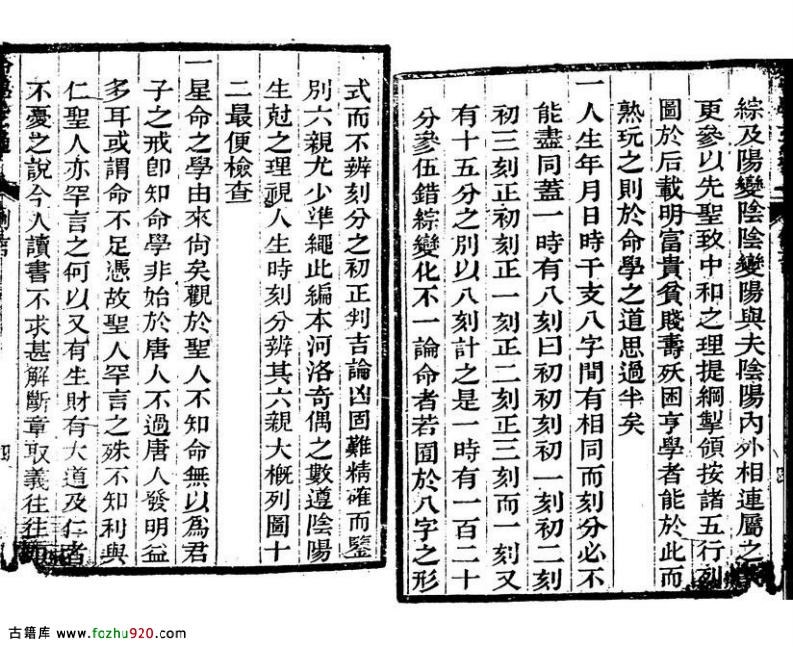 綜及陽變陰陰變陽與夫陰陽內外相連屬之
更參以先聖致中和之理提綱掣領按諸五行列
圖於后載明富貴貧賤壽殀困亨學者能於此而
熟玩之則於命學之道思過半矣
一人生年月日時干支八字間有相同而刻分必不
能盡同蓋一時有八刻曰初初刻初一刻初二刻
初三刻正初刻正一刻正二刻正三刻而一刻又
有十五分之別以八刻計之是一時有一百二十
分參伍錯綜變化不一論命者若囿於八字之形
式而不辨刻分之初正判吉論凶固難精確而鑒
別六親尤少準繩此編本河洛奇偶之數遵陰陽
生尅之理視人生時刻分辨其六親大概列圖十
二最便檢查
一星命之學由來尙矣觀於聖人不知命無以爲君
子之戒卽知命學非始於唐人不過唐人發明益
多耳或謂命不足憑故聖人罕言之殊不知利與
仁聖人亦罕言之何以又有生財有大道及仁者
不憂之說今人讀書不求甚解斷章取義往往
四
古籍库 www.fozhu920.com